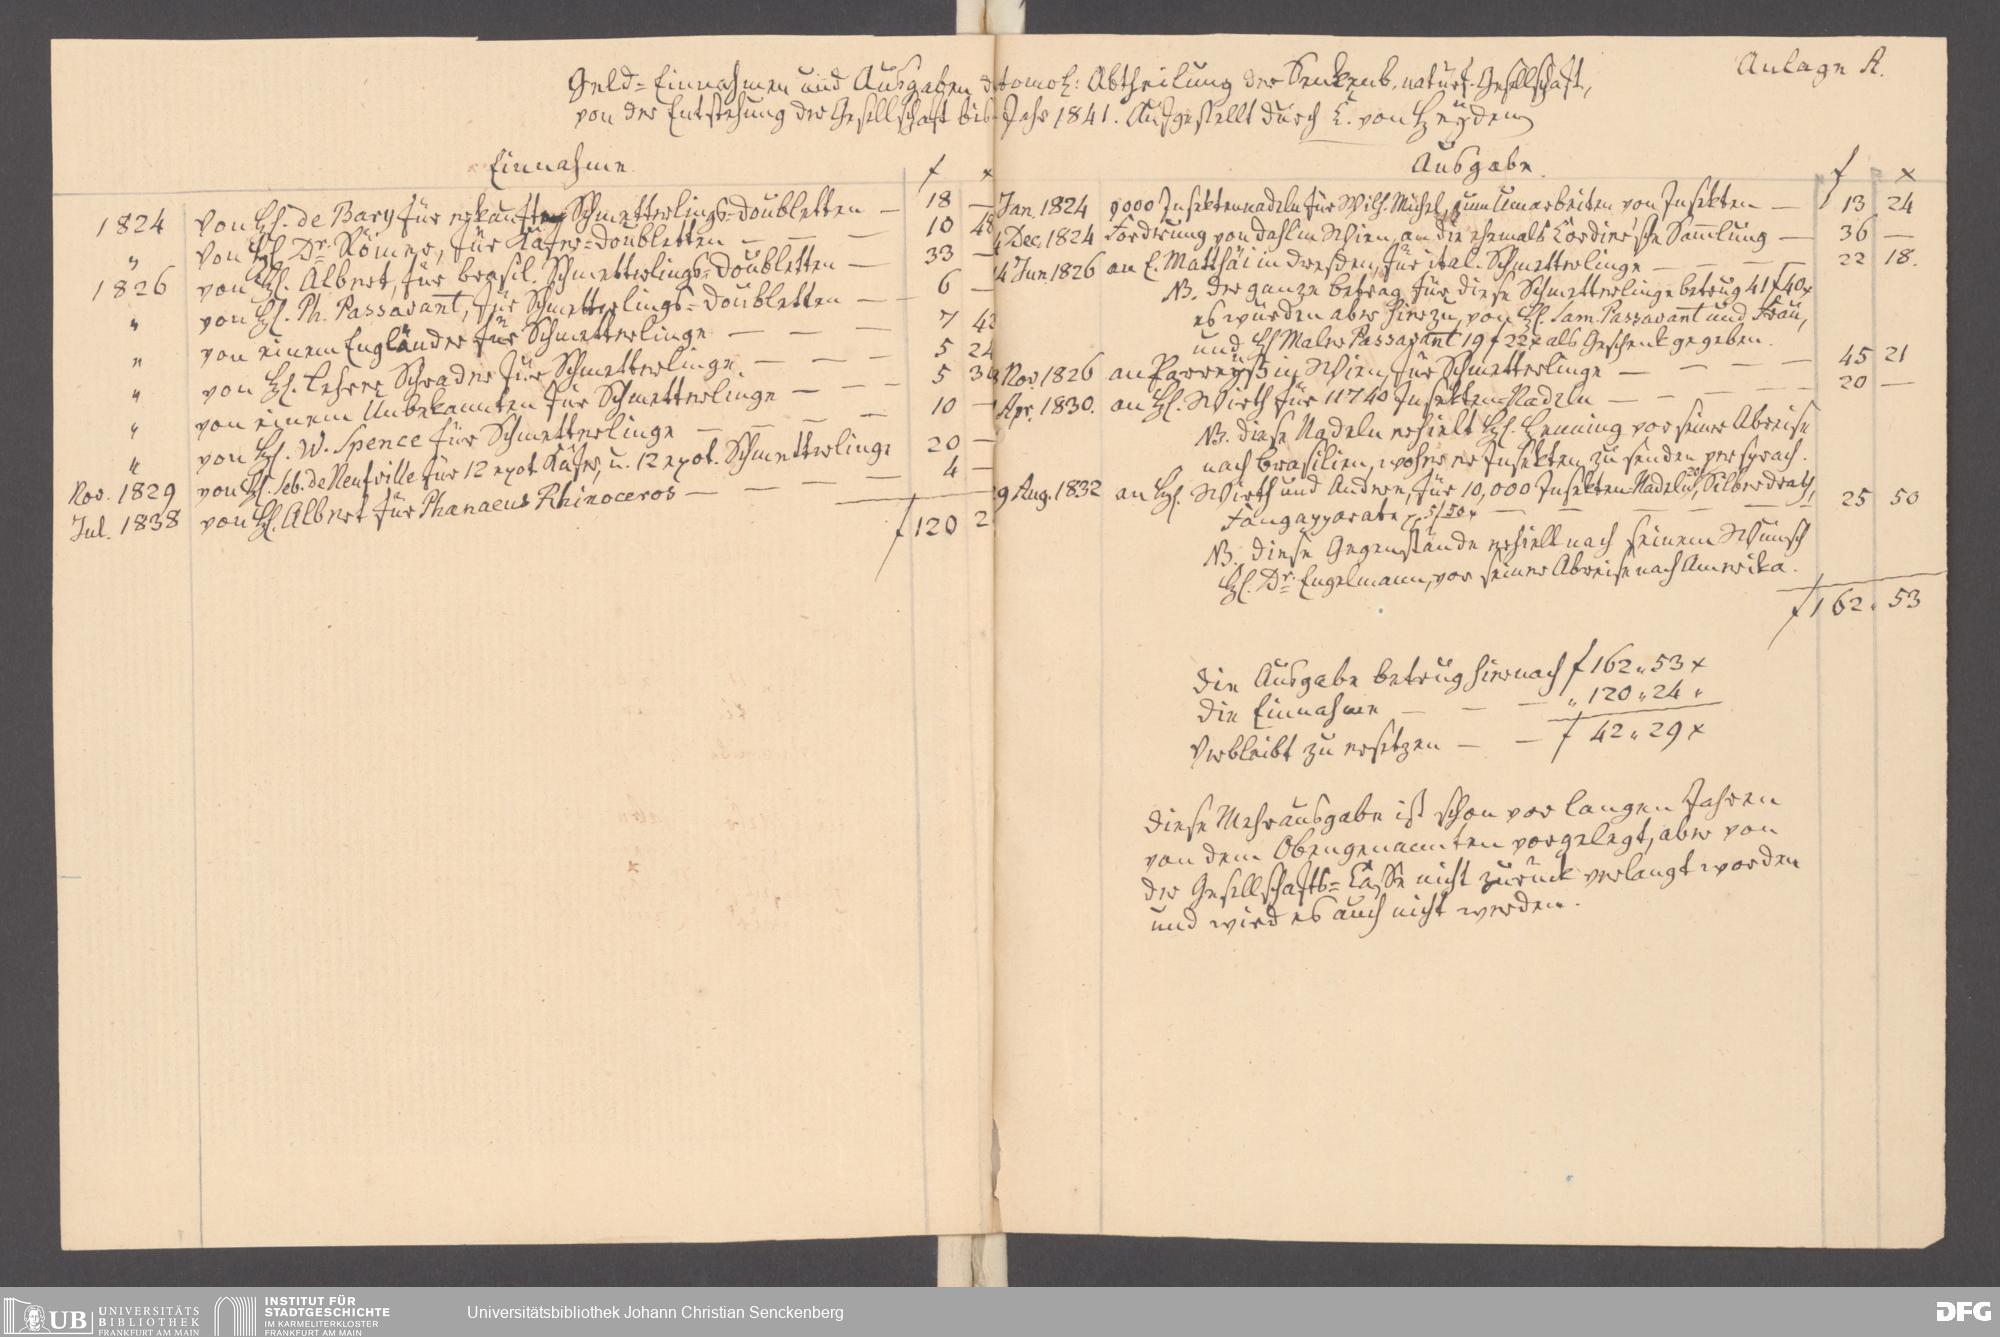 Anlage A.
Geld=Einnahmen und Ausgaben d tomol: Abtheilung der Senkenb. naturf. Gesellschaft,
von der Entstehung der Gesellschaft bis Jahr 1841. Aufgestellt durch C. von Heÿden
Einnahme.
f x
1824 von H. de Bary für verkaufte Schmetterlings=Doubletten — 18 —
" von H. Dr. Römer, für Käfer=Doubletten — — — 10 48
1826 von H. Albert, für brasil. Schmetterlings=Doubletten — 33 —
" von H. Ph. Passavant, für Schmetterlings=Doubletten — — 6 —
" von einem Engländer für Schmetterlinge — — — 7 42
" von H. Lehrer Schrader für Schmetterlinge. — — — 5 24
" von einem Unbekannten für Schmetterlinge — — — 5 30
" von H. W. Spence für Schmetterlinge — — — — 10 —
Nov. 1829 von H. Seb. de Neufville für 12 exot. Käfer, u. 12 exot. Schmetterlinge 20 —
Jul. 1838 von H. Albert für Phanaeus Rhinoceros — — — — 4 —
f 120 2
Ausgabe.
f x
Jan. 1824 9000 Insektennadeln für Wilh. Michel, zum Umarbeiten von Insekten — 13 24
Dec. 1824 Forderung von Dahl in Wien, an die ehemals Cordier'sche Sammlung — 36 —
4 Jun. 1826 an C. Matthäi in Dresden, für ital. Schmetterlinge — — — 22 18.
NB. Der ganze Betrag für diese Schmetterlinge betrug 41 f 40 x
es wurden aber hierzu, von H. Sam. Passavant und Frau,
und H Maler Passavant 19 f 22 x als Geschenk gegeben.
Nov. 1826 an Parreÿß in Wien, für Schmetterlinge — — — — 45 21
Apr. 1830. an H. Wirth für 11740 Insekten=Nadeln — — — — 20 —
NB. Diese Nadeln erhielt H. Henning vor seiner Abreise
nach Brasilien, woher er Insekten zu senden versprach.
9 Aug. 1832 an H. Wirth und Andern, für 10,000 Insekten=Nadeln, Silberdrath,
Fangapparate pr. 5 f 50 x — — — — — — 25 50
NB. Diese Gegenstände erhielt nach seinem Wunsch
H. Dr. Engelmann, vor seiner Abreise nach Amerika.
f 162. 53
Die Ausgabe betrug hiernach f 162 " 53 x
Die Einnahme — — — " 120 " 24 "
Verbleibt zu ersetzen — — f 42 " 29 x
Diese Mehrausgabe ist schon vor langen Jahren
von dem Obengenannten vorgelegt, aber von
der Gesellschafts=Casse nicht zurück verlangt worden
und wird es auch nicht werden.
UB UNIVERSITÄTS
BIBLIOTHEK
FRANKFURT AM MAIN
INSTITUT FÜR
STADTGESCHICHTE
IM KARMELITERKLOSTER
FRANKFURT AM MAIN
Universitätsbibliothek Johann Christian Senckenberg
DFG